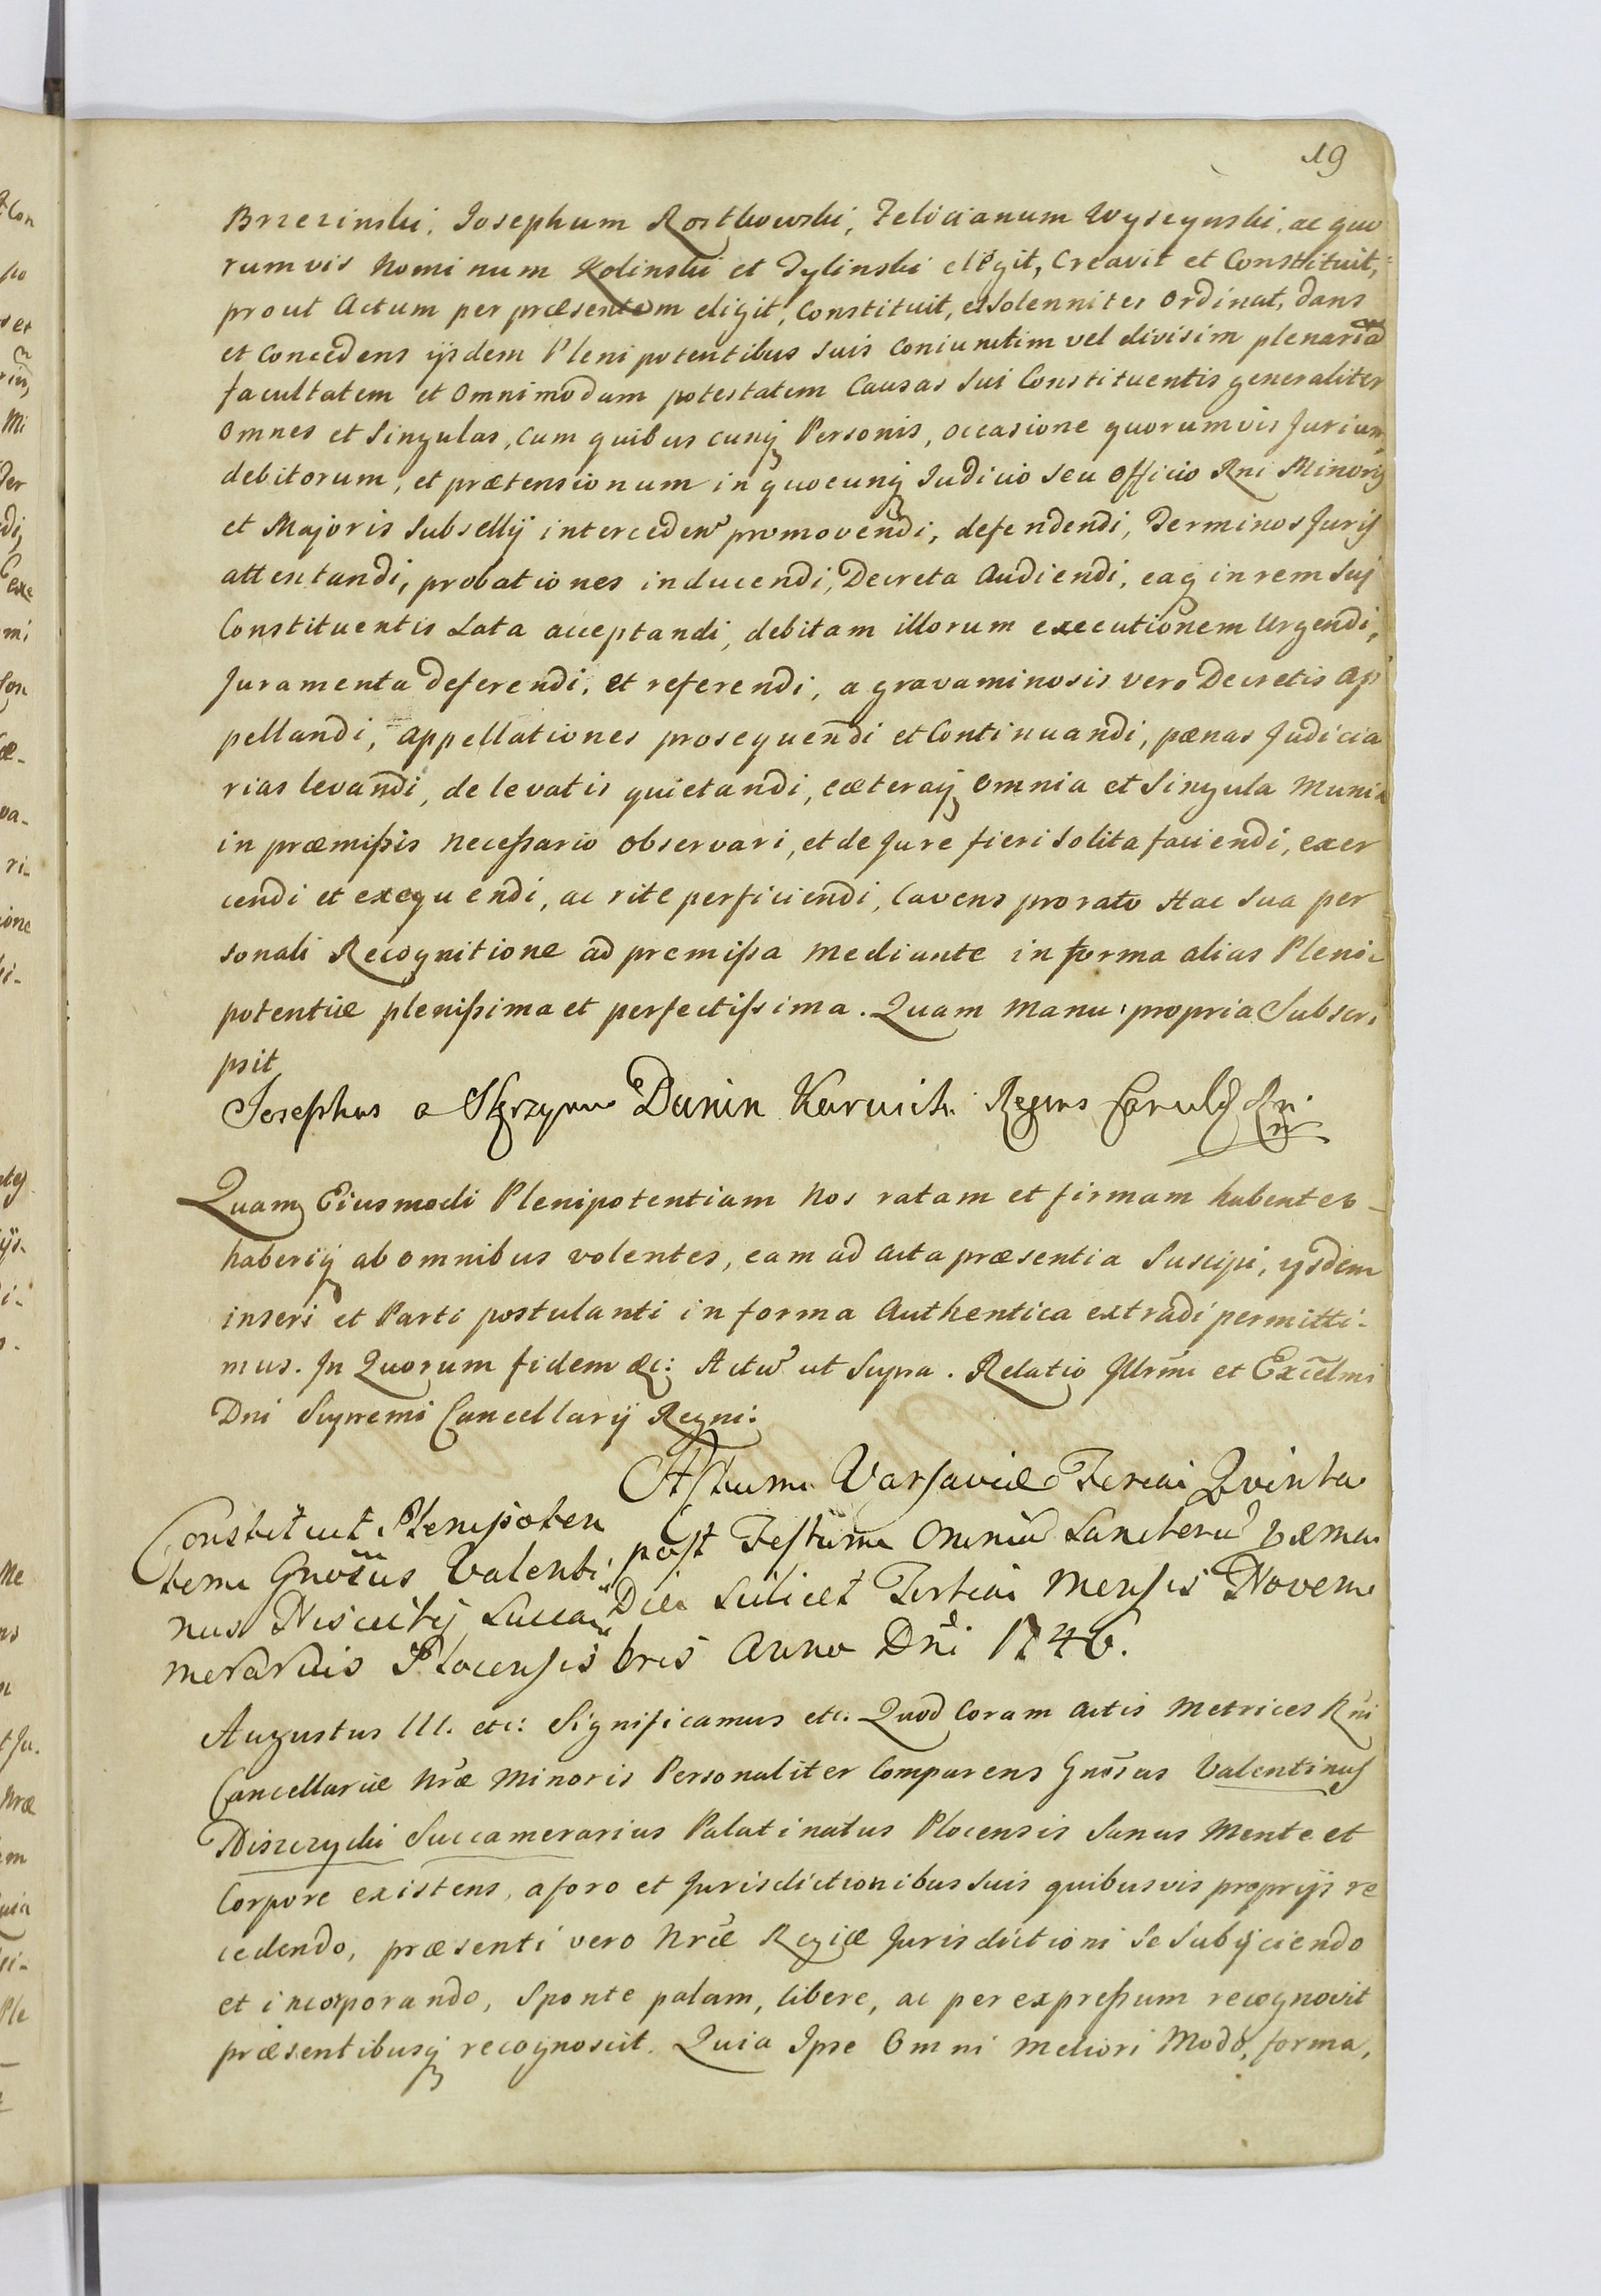 19
Brzezinski, Josephum Rostkowski, Felicianum Wyseynski, ac quo
rumvis Nominum Kolinski et Tylinski elegit, Creavit et Constituit,
prout Actum per præsentem eligit, Constituit, et Solenniter Ordinat, dans
et Concedens ijsdem Plenipotentibus suis Coniunctim vel divisim plenariã
facultatem et Omnimodam potestatem Causas Sui Constituentis generaliter
Omnes et Singulas, cum quibuscunq Personis, occasione quorumvis Jurium
debitorum, et prætensionum in quocunq Judicio seu Officio Rni Minoris
et Majoris Subsellij interceden promovendi, defendendi, Terminos Juris
attentandi, probationes inducendi, Decreta Audiendi, eaq in rem Sui
Constituentis Lata acceptandi, debitam illorum executionem Urgendi,
Juramenta deferendi, et referendi, a gravaminosis vero Decretis ap
pellandi, appellationes prosequendi et Continuandi, pænas Judicia
rias levandi, de levatis quietandi, cæteraq Omnia et Singula Munia
in præmißis Neceßario Observari, et de Jure fieri Solita faciendi, exer
cendi et exequendi, ac rite perficiendi, Cavens pro rato Hac Sua per
sonali Recognitione ad premißa Mediante in forma alias Pleni
potentiæ plenißima et perfectißima. Quam Manu propria Subscri
psit
Josephus a Skrzynno Dunin Karwicki Regens
Quam Eiusmodi Plenipotentiam Nos ratam et firmam habentes
haberiq ab omnibus volentes, eam ad Acta præsentia Suscipi, ijsdem
inseri et Parti postulanti in forma Authentica extradi permitti-
mus. In Quorum fidem &c: Actu ut Supra. Relatio Illrmi et Excelmi
Dni Supremi Cancellarij Regni:
Actum Varsaviæ Feria Qvinta
post Festum Omniũ Sanctorũ pxma
Die Scilicet Tertia Mensis Novem
bris Anno Dñi 1746.
Constituit Plenipoten
tem Gnosus Valenti
nus Succa
merarius Plocensis
Augustus III. etc: Significamus etc. Quod Coram Actis Metrices Rni
Cancellariæ Nræ Minoris Personaliter Comparens Gnosus Valentinus
Succamerarius Palatinatus Plocensis Sanus Mente et
Corpore existens, a foro et Jurisdictionibus Suis quibusvis proprijs re
cedendo, præsenti vero Nræ Regiæ Jurisdictioni Se Subijciendo
et incorporando, Sponte palam, libere, ac per expreßum recognovit
præsentibusq recognoscit. Quia Ipse Omni Meliori Modo, forma,